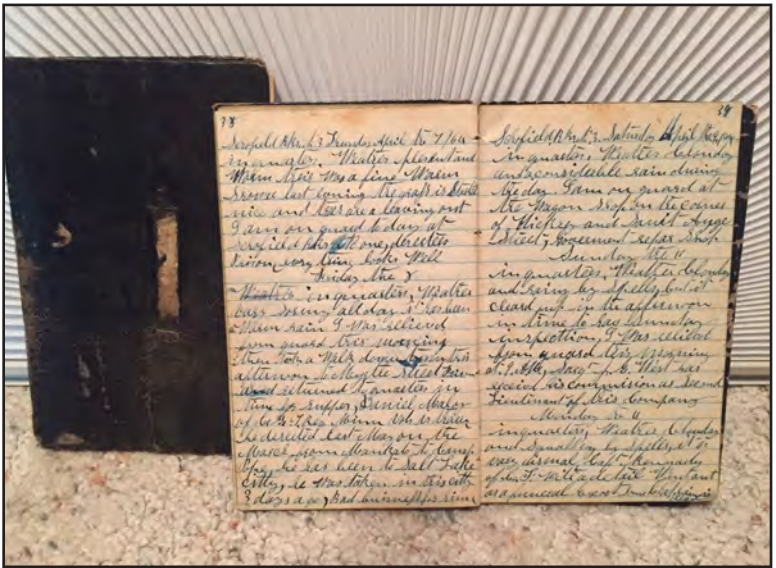 38
Scofield Bks. 3 Thursday April the 7/64
in quarters, Weather plesent and
Warm their Was a fine Warm
shower last evning the grass is
nice and trees are a leaving out
I am on guard to day at
Scofield bks at one,
division, evry thing looks Well
Friday the 8
Weather in quarters, Weather
all day it has been
Warm rain I Was relieved
from guard this morning
then took a Walk down town this
afternoon to Street
and returned to quarters in
time for supper, Daniel
of Co. G. 7 Reg Minn Vol is here
he deserted last May on the
March from Mankato to Camp
Pope, he has been to Salt Lake
citty, he Was taken in this citty
3 days ago, bad buisness for him
39
Scofield Bk 3. Saturday April the 9/64
in quarters, Weather cloudy
and considerable rain during
the day. I am on guard at
the Wagon Shop on the corner
of Hickry and Saint Ange
Street, Goverment repar Shop
Sunday the
in quarters, Weather cloudy
and rainy by spells, but it
cleard up in the afternoon
in time to has Sunday
inspection, I Was relieved
from guard this morning
at 9 Sargt J. G. West has
receivd his commision as Second
Lieutenant of this Company
Monday the 11
in quarters, Weather cloudy
and squally by spells, it is
very dismal, Capt Kennady
of Co. F. With a detail Went out
as a funeral Escort